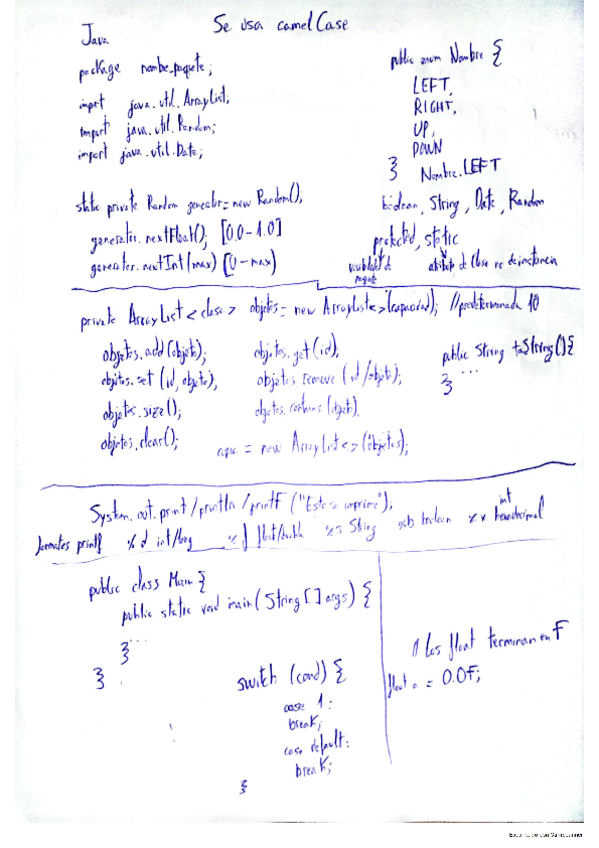 Se usa camelCase
Java
package nombe_paquete;
import java.util.ArrayList;
import java.util.Random;
import java.util.Date;
static private Random generator = new Random();
generator.nextFloat(); [0.0-1.0]
generator.nextInt(max) [0-max)
public enum Nombre {
LEFT,
RIGHT,
UP,
DOWN
}
Nombre.LEFT
boolean, String, Date, Random
protected, static
visibilidad de paquete
atributo de clase no de instancia
private ArrayList<clase> objetos = new ArrayList<>(capacidad); //predeterminada 10
objetos.add(objeto);
objetos.set(id, objeto);
objetos.size();
objetos.clear();
objetos.get(id);
objetos.remove(id/objeto);
objetos.contains(objeto);
= new ArrayList<>(objetos);
public String toString(){
...
}
System.out.print/println/printf("Esto se imprime");
formatos printf %d int/long %f float/double %s String %b boolean %x int hexadecimal
public class Main {
public static void main(String[] args) {
...
}
}
switch (cond) {
case 1:
break;
case default:
break;
}
Los float terminan en F
float a = 0.0F;